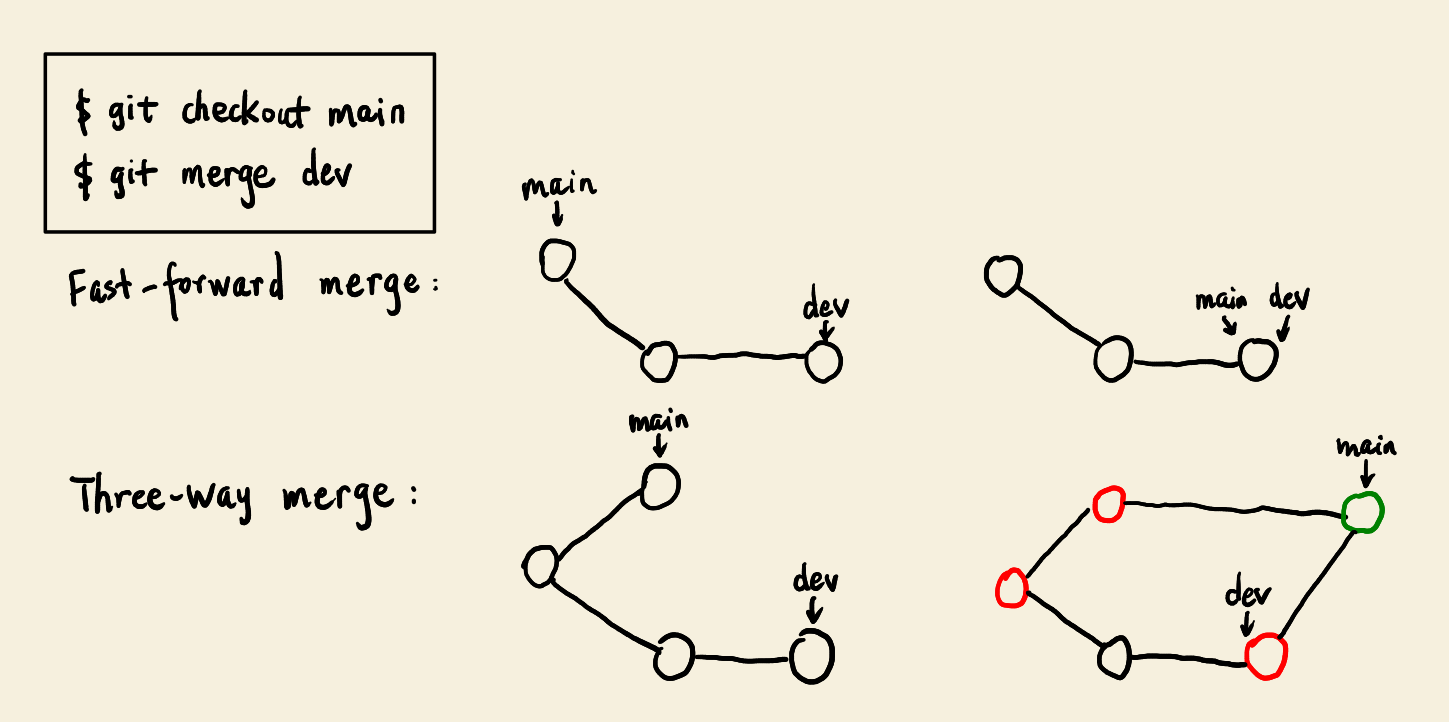 $ git checkout main
$ git merge dev
main
Fast-forward merge:
dev
main dev
main
Three-way merge:
dev
main
dev